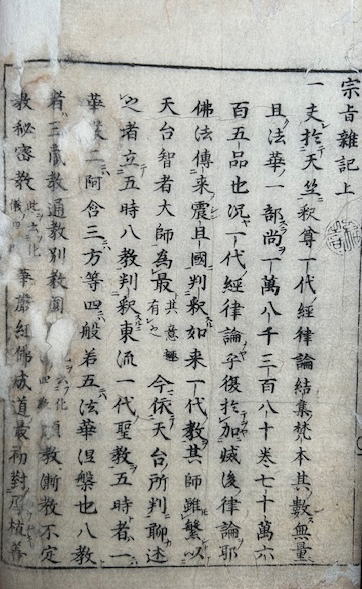 宗旨雜記上
一夫於天竺釈尊一代経律論結集梵本其數無量
且法華一部尚一萬八千三百八十巻七十萬六
百五品也況一代経律論乎復於加滅後律論耶
佛法傳来震旦國判釈如来一代教其師雖繁以
天台智者大師為最其意趣有之今依天台所判聊述
之者立五時八教判釈東流一代聖教五時者一
華 二阿含三方等四般若五法華涅槃也八教
者三蔵教通教別教圓 頓教漸教不定
教秘密教此六 化儀四 華嚴経佛成道最初對 植善